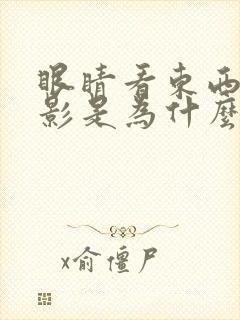 眼睛看東西
影是為什麼
x俞僵尸